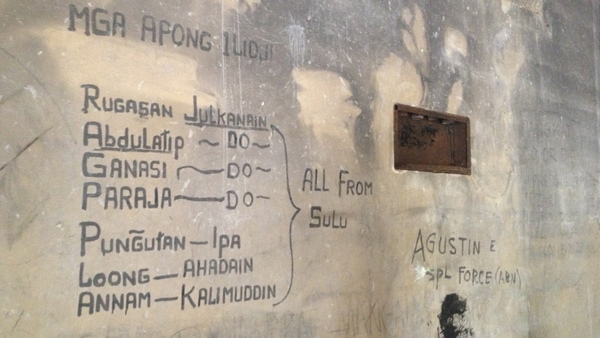 MGA APONG ILIDJI
RUGASAN JULKANAIN
ABDULATIP ~ DO ~
GANASI ~ DO ~
PARAJA ~ DO ~
PUNG̃UTAN — IPA
LOONG — AHADAIN
ANNAM — KALIMUDDIN
ALL FROM
SULU
AGUSTIN E
SPL FORCE (ABN)